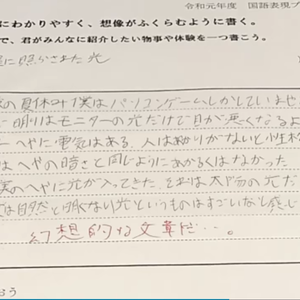 令和元年度 国語表現プ
にわかりやすく、想像がふくらむように書く。
で、君がみんなに紹介したい物事や体験を一つ書こう。
に照らされた光
の夏休み僕はパソコンゲームしかしていませ
明りはモニターの光だけで目が悪くなるよ
へやに電気はある。人は明りがないと
はへやの暗さと同じようにあかるくはなかった
僕のへやに光が入ってきた。それは太陽の光だ
は自然と明るい光というものはすごいなと感じ
幻想的な文章だ…。
おう